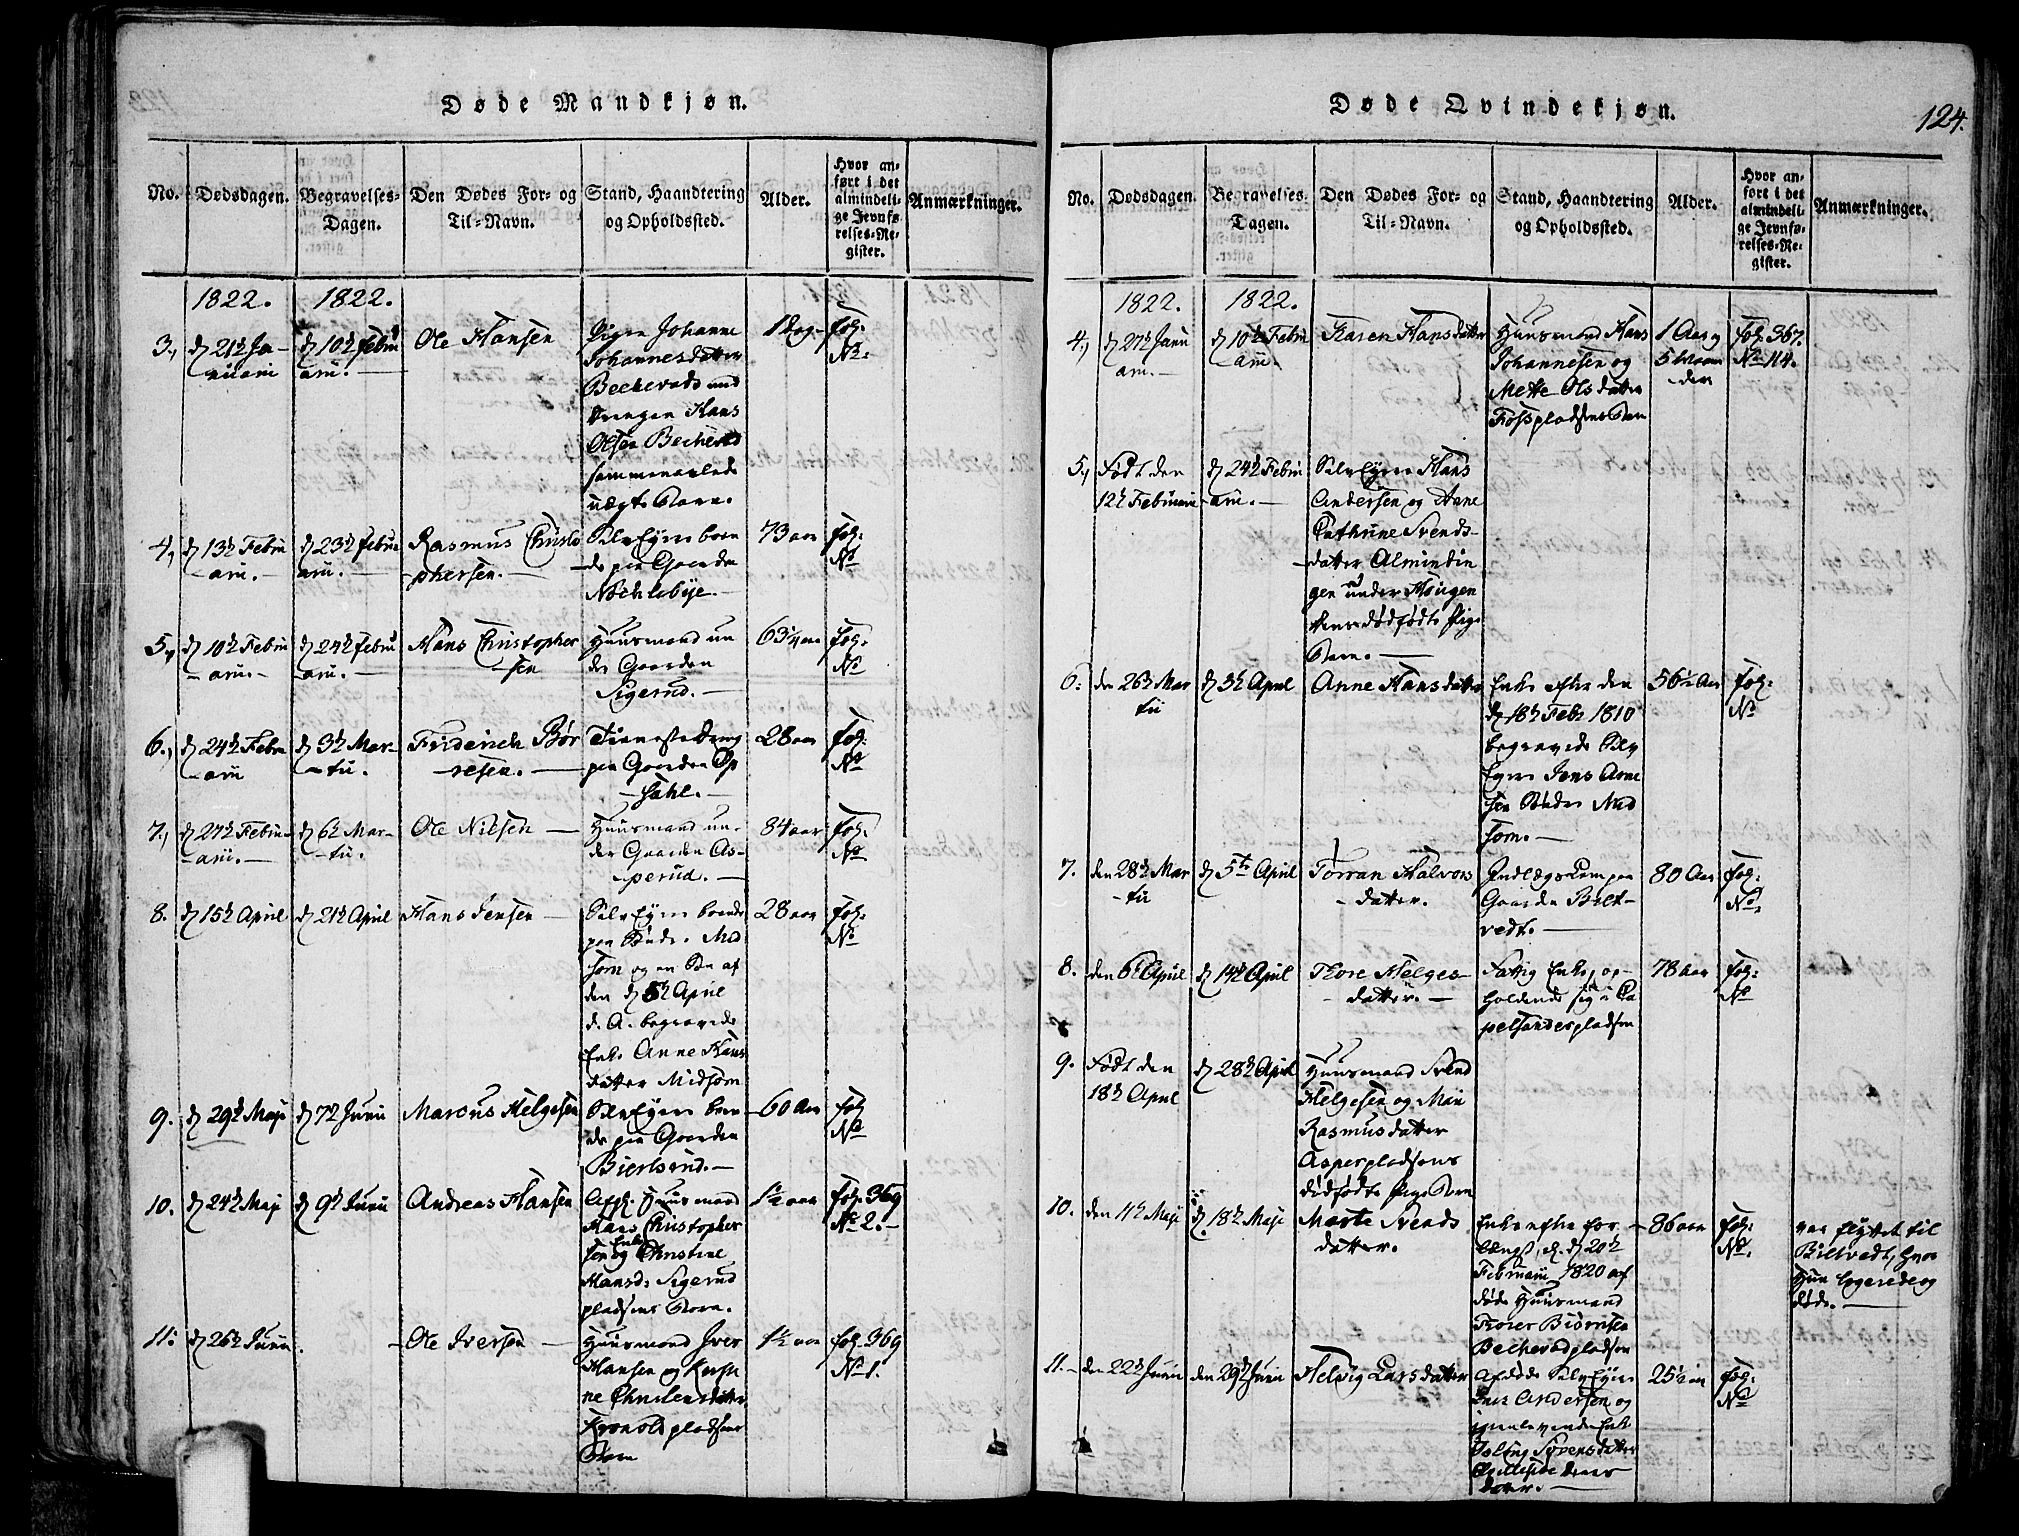 Døde Mandkjøn.
No.
Dødsdagen.
Begravelses-
Dagen.
Den Dødes For- og
Til-Navn.
Stand, Haandtering
og Opholdssted.
Alder.
Hvor an-
ført i det
almindeli-
ge Jevnfø-
relses-Re-
gister.
Anmærkninger.
1822. 1822.
3.,
d 21de Ja-
nuarii
d 10de Febru
arii.
Ole Hansen
Pigen Johanne
Johannesdatter
Becherads und
drengen Hans
Olsen Becherads
sammenavlede
uægte Barn.
1 Dag
Fol:
No:
4.,
d 13de Febru
arii.
d 23de Febru
arii.
Rasmus Christo
phersen.
SelvEyer boen
de paa Gaarden
Nøchlebye.
73 aar
Fol:
No
5.,
d 10de Febru
arii.
d 24de Febru
arii.
Hans Christopher
sen
Huusmand un
der Gaarden
Sigerud.
63 1/4 aar
Fol:
No
6.,
d 24de Febru
arii
d 3de Mar-
tii.
Friderich Bør
resen.
Tieneste Dreng
paa Gaarden Op
sahl.
28 aar
Fol:
No
7.,
d 27de Febru-
arii.
d 6te Mar-
tii.
Ole Nilsen
Huusmand un-
der Gaarden As-
perud.
84 aar
Fol:
No
8.
d 15de April
d 21de April
Hans Jensen
SelvEyer boende
paa Bøde. Mid
som og en Søn af
den d 5te April
d. A. begravede
Enke Anne Hans
datter Midsom
28 aar
Fol:
No
9.
d 29de Maji
d 7de Junii
Marcus Helgesen
SelvEyer boen
de paa Gaarden
Bierkerud.
60 Aar
Fol
No
10.
d 24de Maji
d 9de Junii
Andreas Hansen
Afgl. Huusmand
Hans Christopher
sen og Enke Christine
Hansd: Sigerud
pladsens Barn.
1 1/2 aar
Fol. 369
No 2.
11.
d 26de Junii
Ole Iversen
Huusmand Iver
Hansen og Kirsti
ne Christensdatter
Kronoldpladsens
Barn
1 1/2 aar
Fol. 369
No 1.
Døde Qvindekjøn.
124.
No.
Dødsdagen.
Begravelses-
Dagen.
Den Dødes For- og
Til-Navn.
Stand, Haandtering
og Opholdssted.
Alder.
Hvor an-
ført i det
almindeli-
ge Jevnfø-
relses-Re-
gister.
Anmærkninger.
1822. 1822.
4.,
d 27de Janu
arii.
d 10de Febru
arii.
Karen Hansdatter
Huusmand Hans
Johannesen og
Mette Olsdatter
Fosspladsens Barn
1 Aar og
5 Maane
der
Fol. 367.
No 114.
5.,
Født den
12te Februarii
d 24de Febru
arii.
SelvEyer Hans
Andersen og Anne
Cathrine Svends-
datter Almindin
gen under Hougen
deres dødfødte Pige
Barn.
6.
den 26de Mar
tii
d 3de April
Anne Hansdatter
Enke efter den
d 18de Febr 1810
begravede Selv
Eyer Jens Arne
sen Bøder Mid
som.
56 1/2 Aar
Fol:
No
7.
den 28de Mar
tii
d 5te April
Torran Halvors
datter.
IndlægsLem paa
Gaarden Bilt-
vedt.
80 Aar
Fol:
No.
8.
den 6te April
d 14de April
Thore Helges
datter.
Fattig Enke, op-
holdende sig i Ca
pelsanderpladsen
78 Aar
Fol:
No
9.
Født den
18de April
d 28de April
Huusmand Svend
Helgesen og Mari
Rasmusdatter
Asperpladsens
dødfødte Pige Barn
10.
den 11te Maji
d. 18de Maji
Marte Svends
datter.
Enke efter for
længst, d. d 20de
Februarii 1820 af
døde Huusmand
Thoer Biørnsen
Becheradpladsen
86 aar
Fol:
No.
var flyttet til
Biltvedt, hvor
Hun logerede og
døde.
11.
den 22de Junii
den 29de Junii
Helvig Larsdatter
Afdøde SelvEyer
Lars Andersen og
igienlevende Enke
Iselong Sørensdatter
Qvilleside deres
datter.
25 1/2 aar
Fol:
No